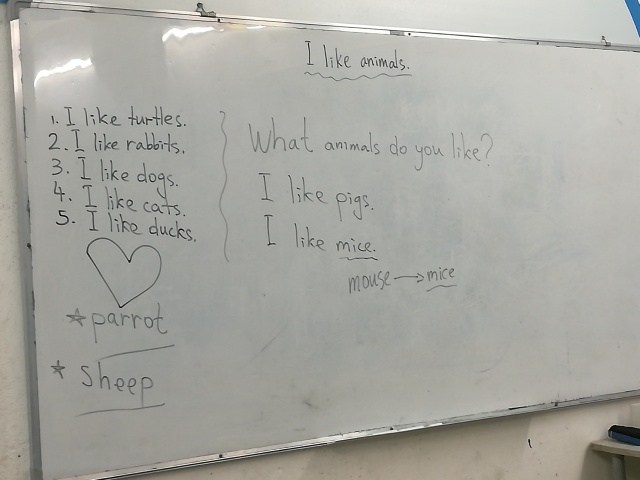 I like animals.
1. I like turtles.
2. I like rabbits.
3. I like dogs.
4. I like cats.
5. I like ducks.
☆ parrot
☆ sheep
What animals do you like?
I like pigs.
I like mice.
mouse → mice